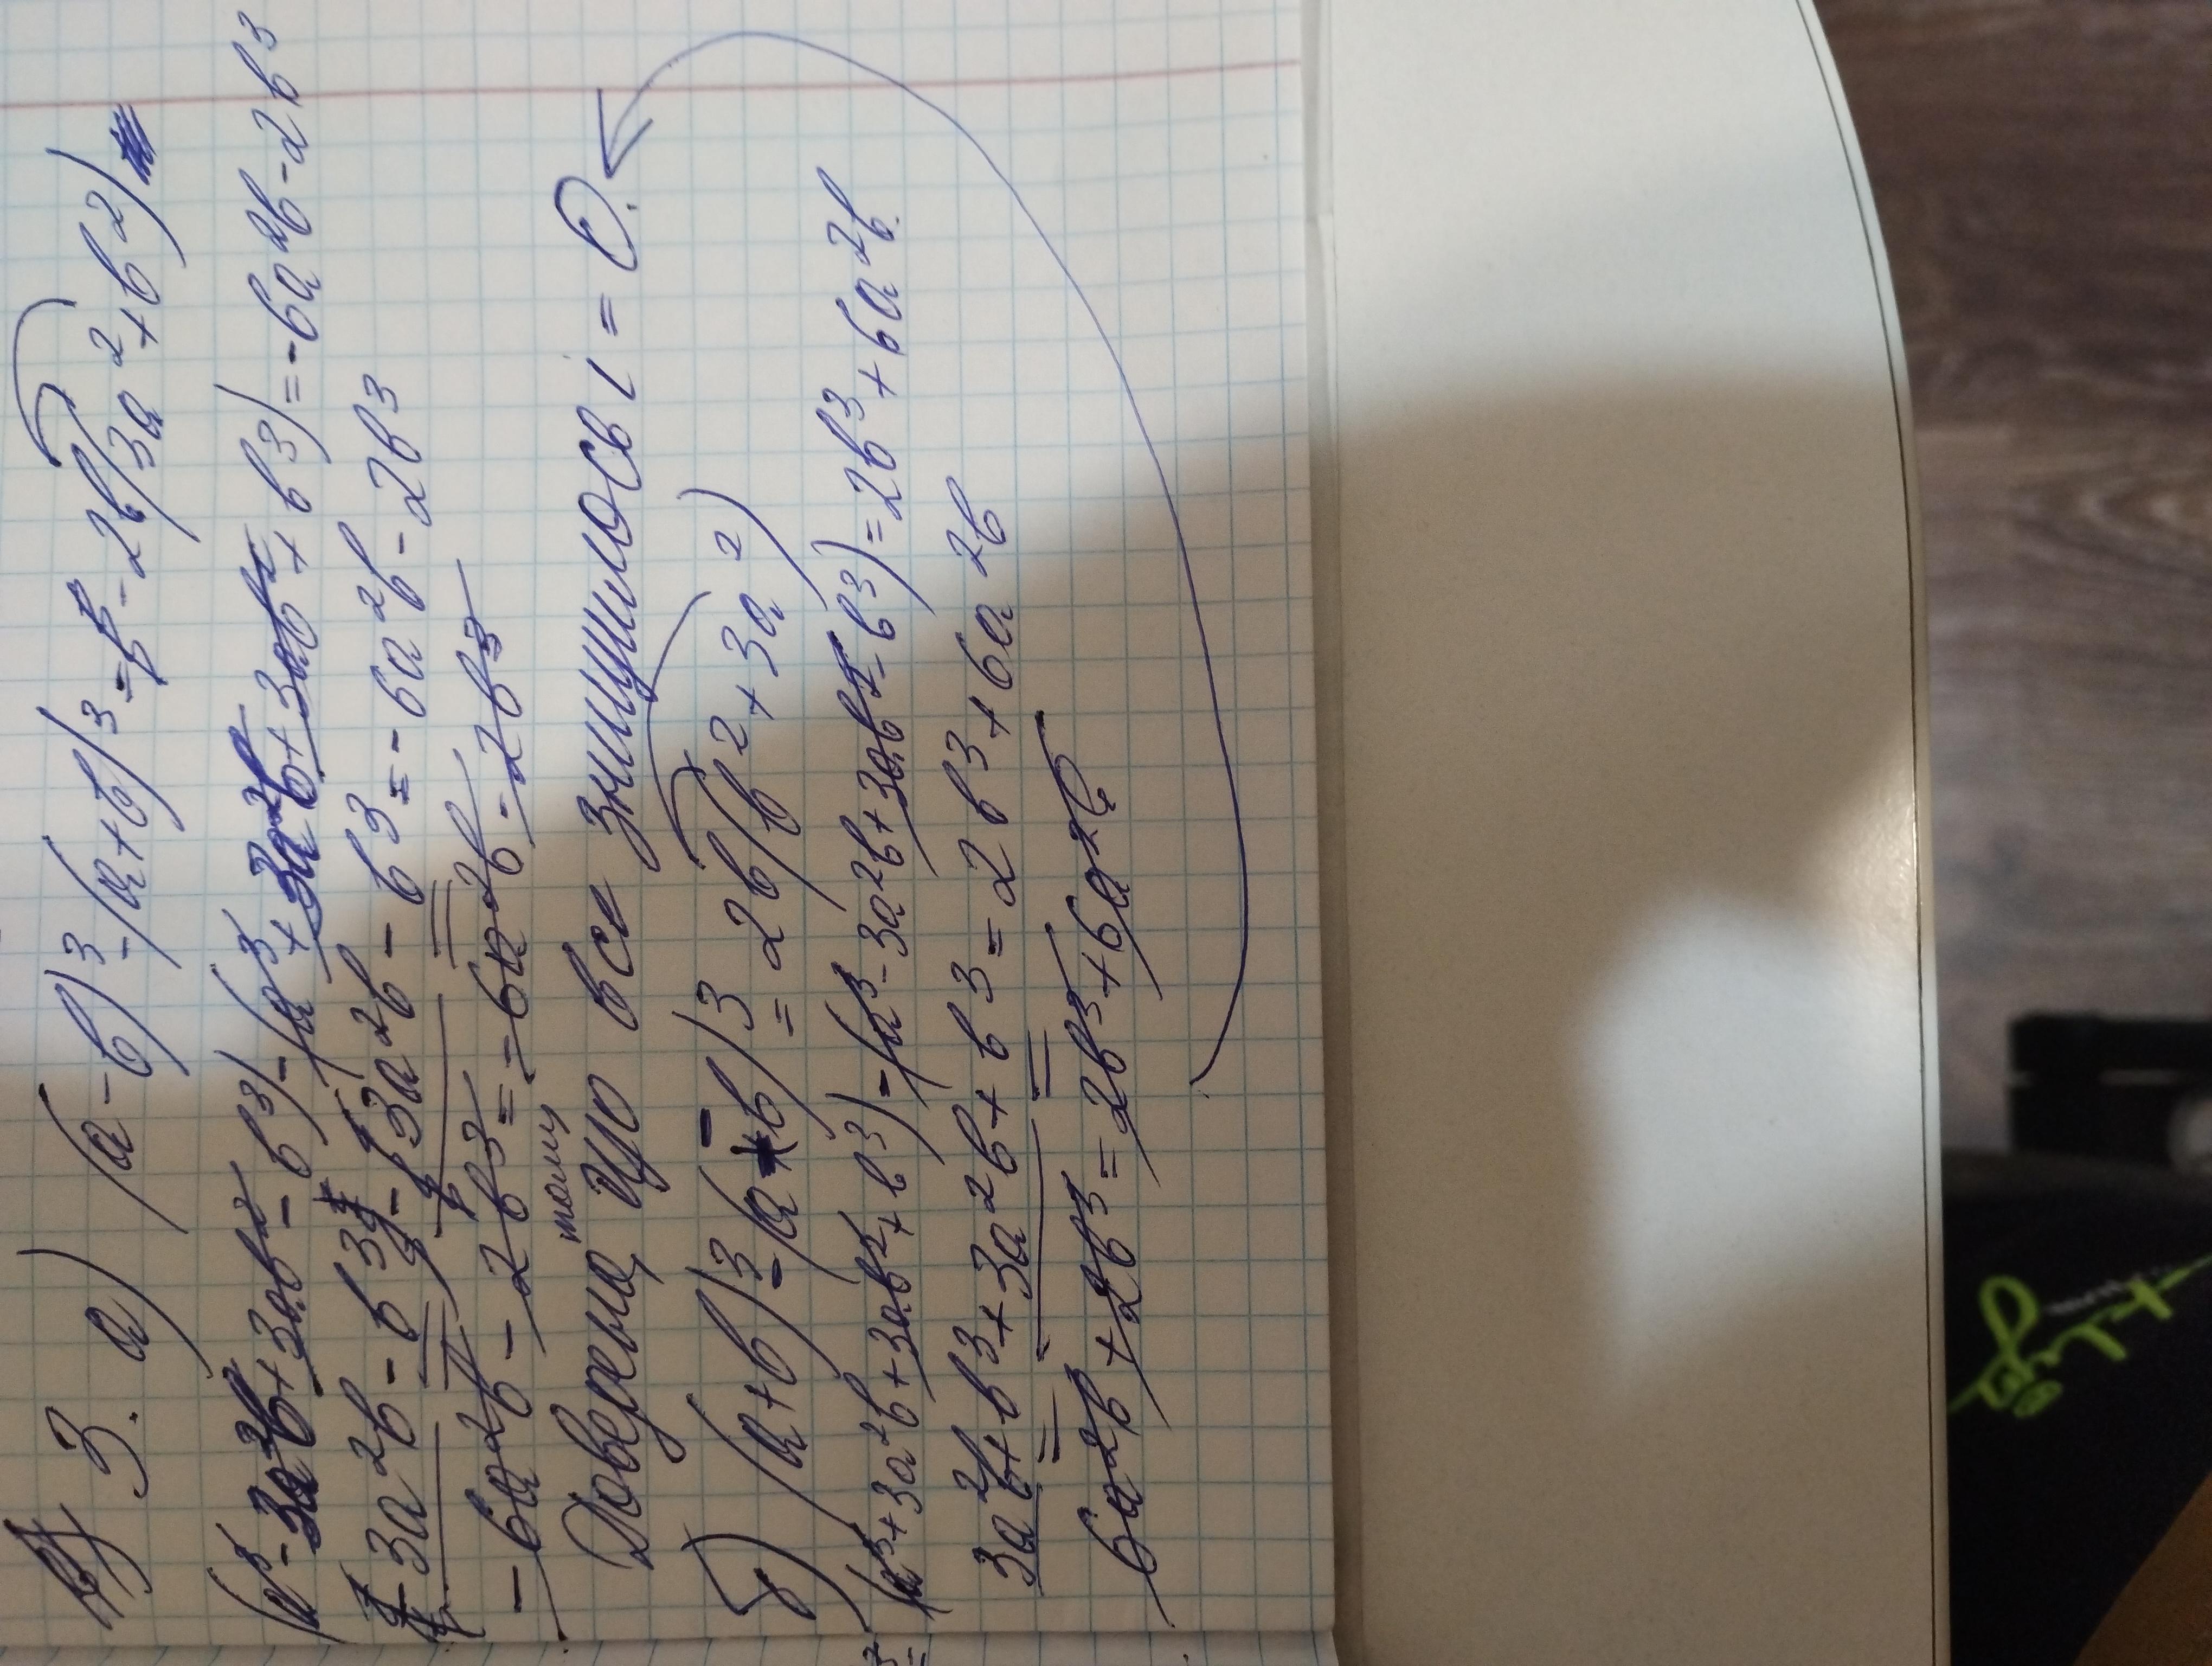 3. а) (a-b)³-(a+b)³=-2b(3a²+b²)
(a³-3a²b+3ab²-b³)-(a³+3a²b+3ab²+b³)=-6a²b-2b³
-3a²b-b³-3a²b-b³=-6a²b-2b³
-6a²b-2b³=-6a²b-2b³
Доверено, тому що все знищилось і = 0.
б) (a+b)³-(a-b)³=2b(b²+3a²)
(a³+3a²b+3ab²+b³)-(a³-3a²b+3ab²-b³)=2b³+6a²b
3a²b+b³+3a²b+b³=2b³+6a²b
6a²b+2b³=2b³+6a²b